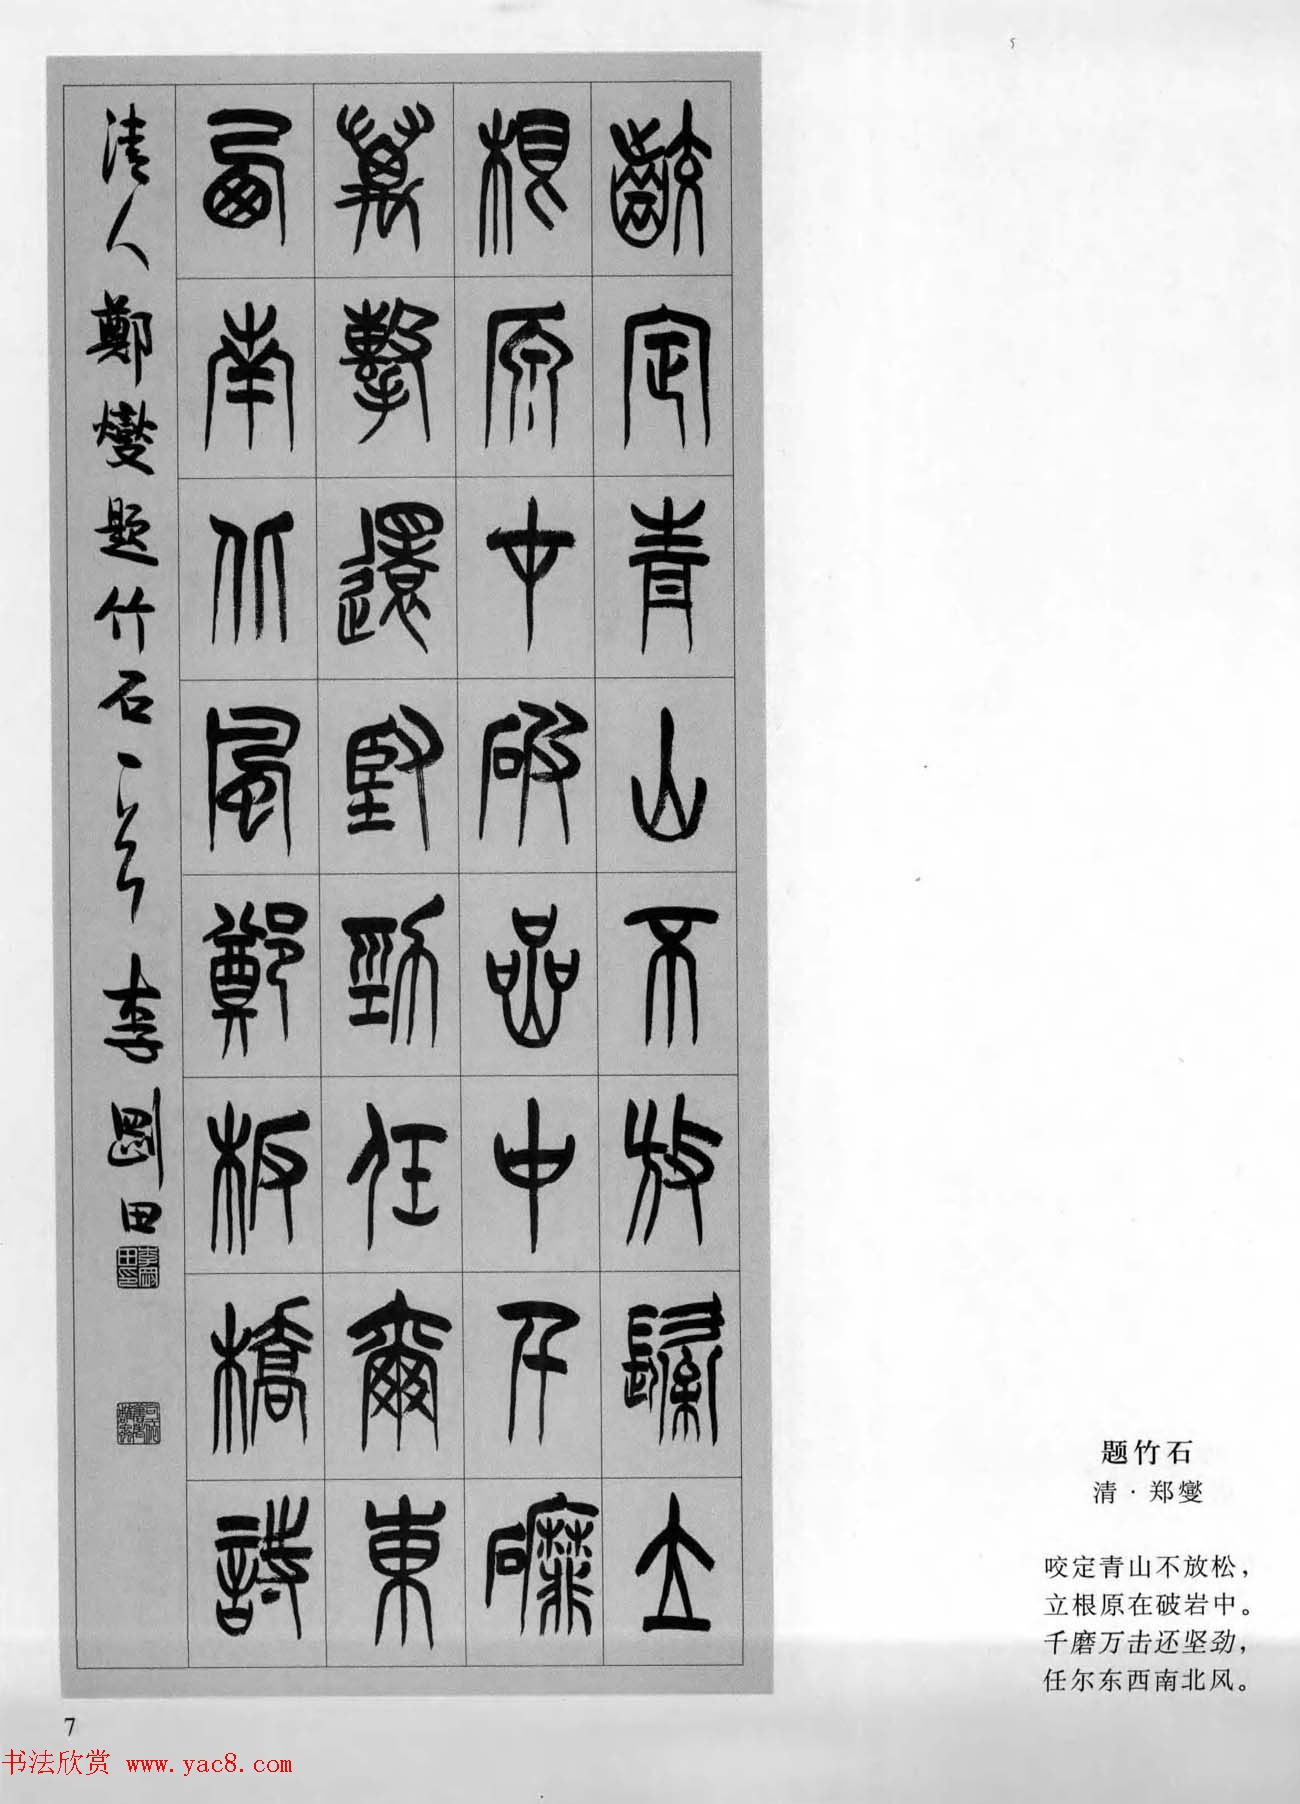 齩定青山不放鬆立
根原在破嵒中千磨
萬擊還堅勁任爾東
西南北風鄭板橋詩
清人鄭燮題竹石一首李剛田
题竹石
清·郑燮
咬定青山不放松，
立根原在破岩中。
千磨万击还坚劲，
任尔东西南北风。
7
书法欣赏 www.yac8.com